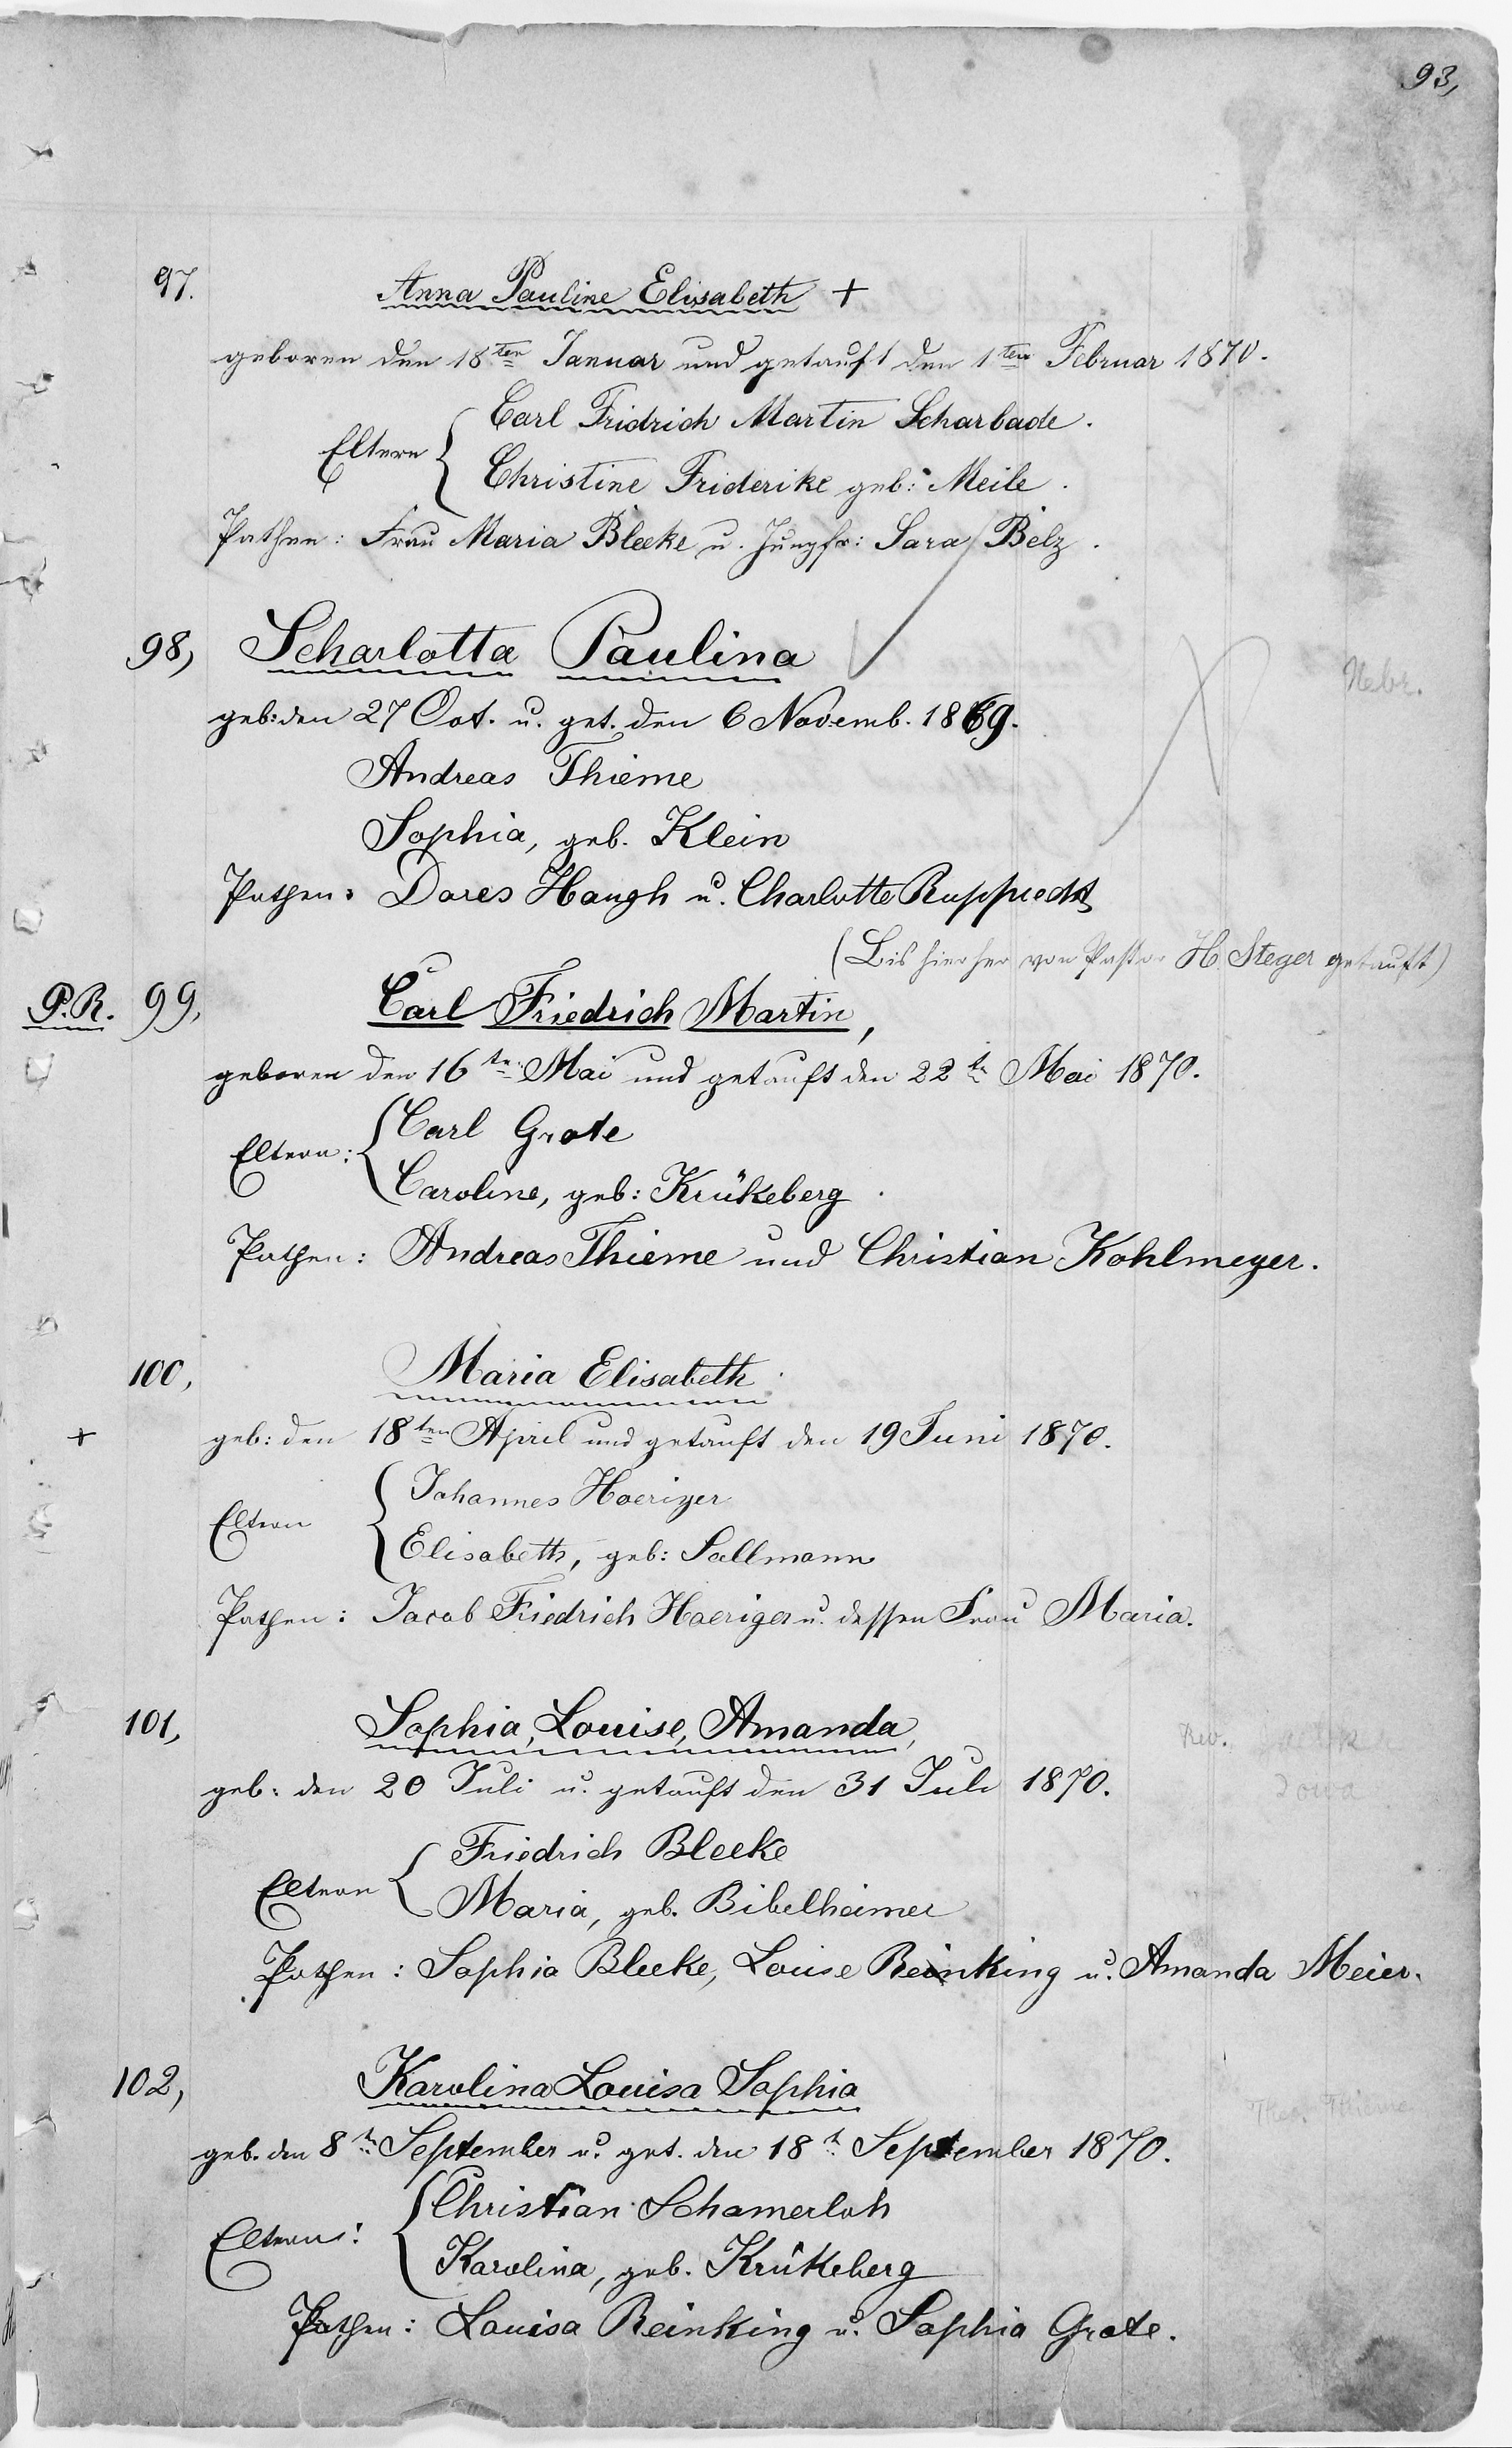 93,
97. Anna Pauline Elisabeth +
geboren den 18ten Januar und getauft den 1ten Februar 1870.
Eltern { Carl Fridrich Martin Scharbade.
Christine Friderike geb: Meile.
Pathen: Frau Maria Bleeke u. Jungfr: Sara Belz.
98, Scharlotta Paulina
Nebr.
geb: den 27 Oct. u. get. den 6 Novemb. 1869.
Andreas Thieme
Sophia, geb. Klein
Pathen: Dores Haugh u. Charlotte Rupprecht
(Bis hierher von Pastor H. Steger getauft)
P.R. 99, Carl Friedrich Martin,
geboren den 16te Mai und getauft den 22te Mai 1870.
Eltern: { Carl Grote
Caroline, geb: Krükeberg.
Pathen: Andreas Thieme und Christian Kohlmeyer.
100, Maria Elisabeth
+ geb: den 18ten April und getauft den 19 Juni 1870.
Eltern { Johannes Hoeriger
Elisabeth, geb: Sallmann
Pathen: Jacob Friedrich Hoeriger u. dessen Frau Maria.
101, Sophia, Louise, Amanda,
Rev.
geb: den 20 Juli u. getauft den 31 Juli 1870.
Iowa
Eltern { Friedrich Bleeke
Maria, geb. Bibelheimer
Pathen: Sophia Bleeke, Louise Reinking u. Amanda Meier.
102, Karolina Louisa Sophia
Theo. Thieme
geb. den 8t September u. get. den 18t September 1870.
Eltern: { Christian Schamerloh
Karolina, geb. Krükeberg
Pathen: Louisa Reinking u. Sophia Grote.